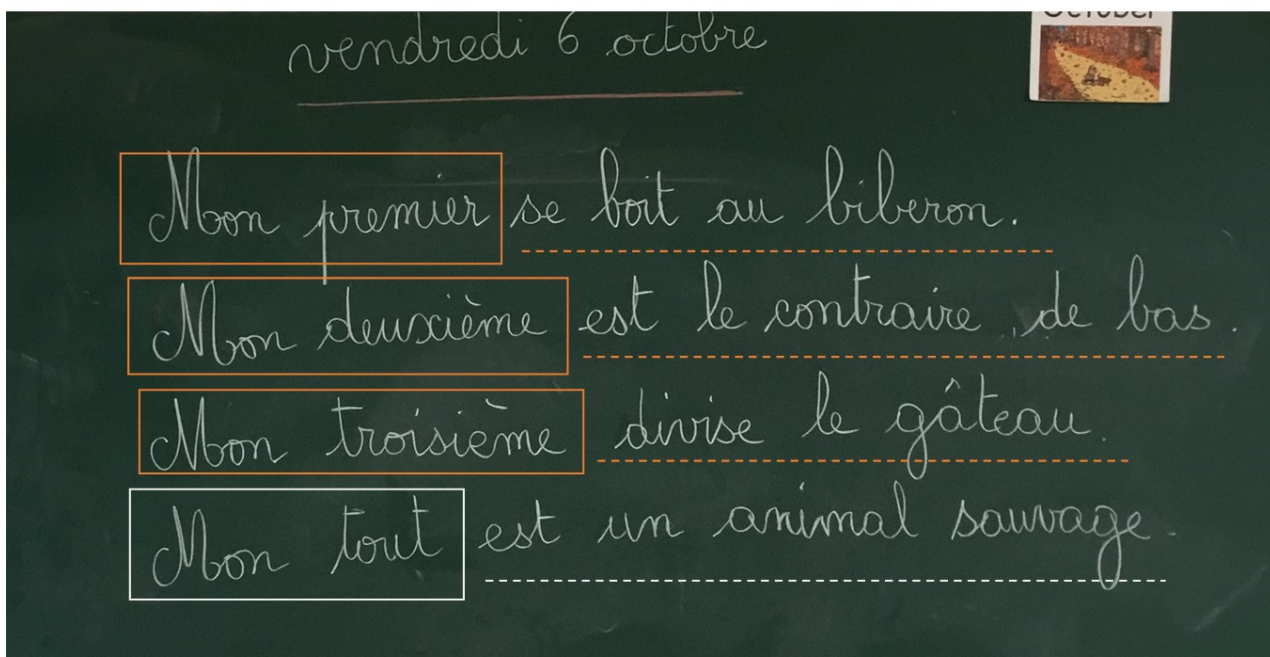 vendredi 6 octobre
October
Mon premier se boit au biberon.
Mon deuxième est le contraire de bas.
Mon troisième divise le gâteau.
Mon tout est un animal sauvage.